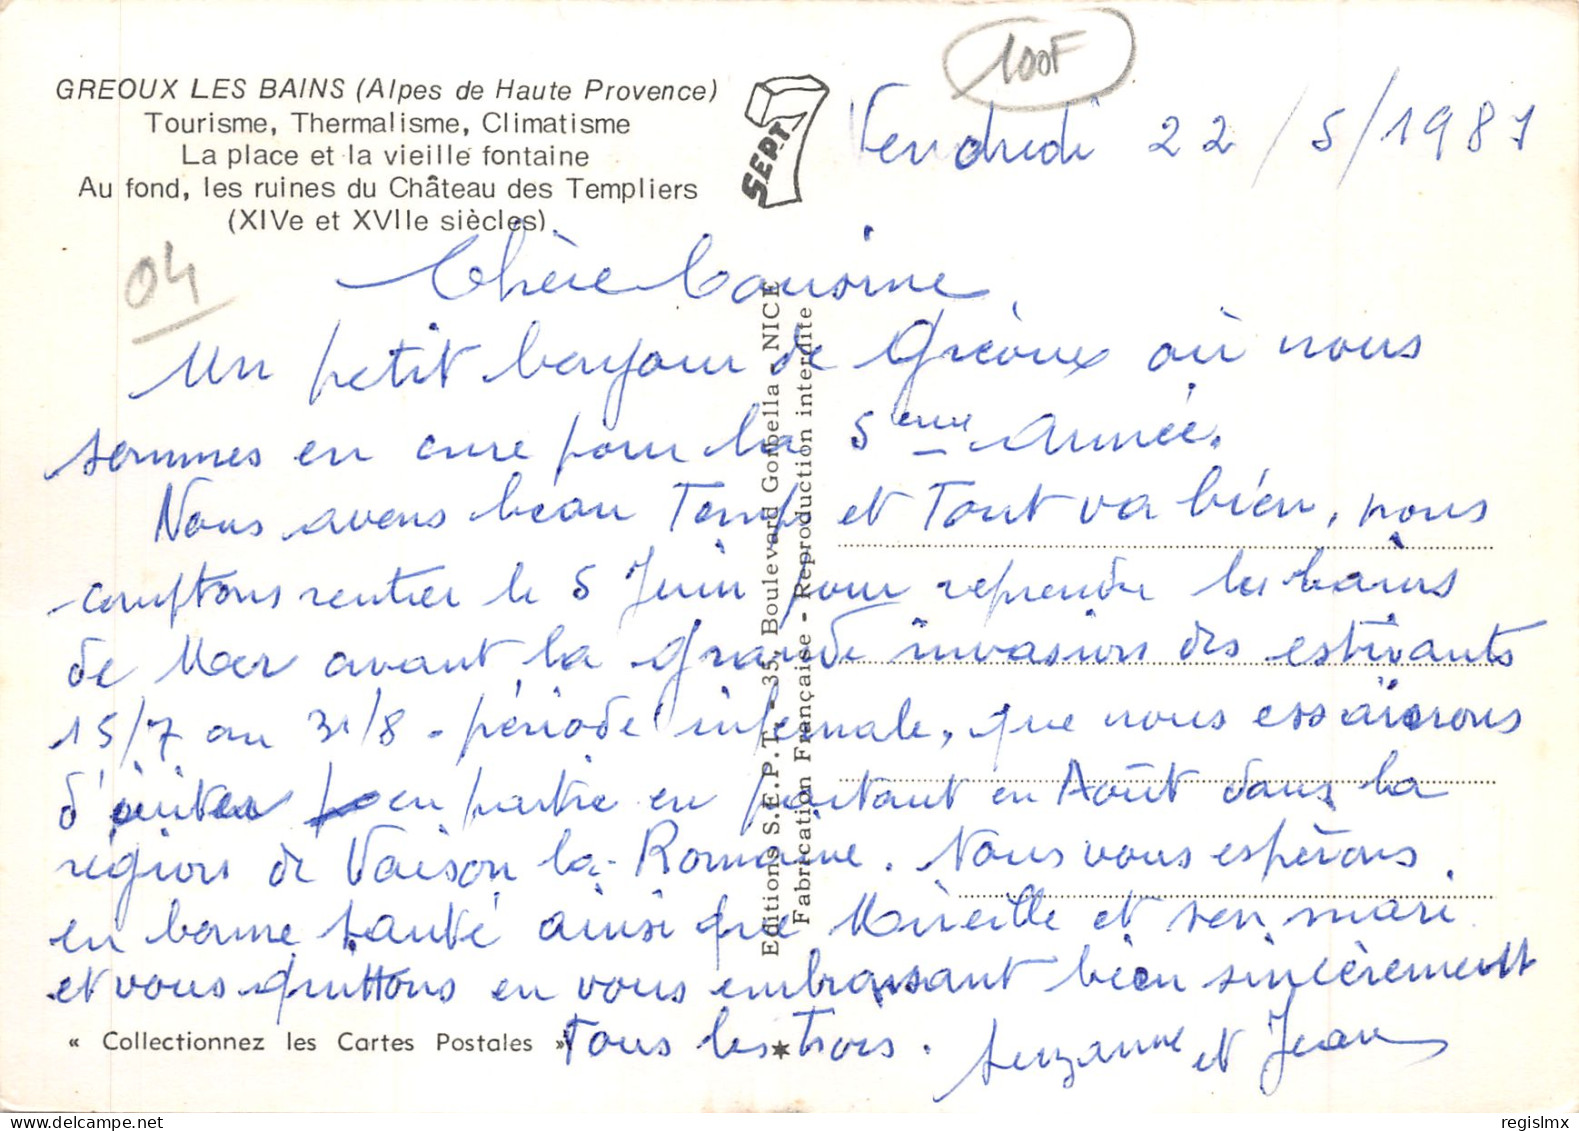 100F
GREOUX LES BAINS (Alpes de Haute Provence)
Tourisme, Thermalisme, Climatisme
La place et la vieille fontaine
Au fond, les ruines du Château des Templiers
(XIVe et XVIIe siècles).
SEPT
Vendredi 22/5/1987
04
Chère Cousine,
Un petit bonjour de Gréoux où nous
sommes en cure pour la 5eme Année.
Nous avons beau Temps et Tout va bien, nous
comptons rentrer le 5 Juin pour reprendre les bains
de Mer avant la grande invasion des estivants
15/7 au 31/8 - période infernale, que nous essaierons
d'éviter en partie en partant en Août dans la
région de Vaison la-Romaine. Nous vous espérons
en bonne santé ainsi que Mireille et son mari
et vous quittons en vous embrassant bien sincèrement
Tous les Trois. Suzanne et Jean
Editions S.E.P.T. - 35, Boulevard Gorbella - NICE
Fabrication Française - Reproduction interdite
« Collectionnez les Cartes Postales »
regislmx